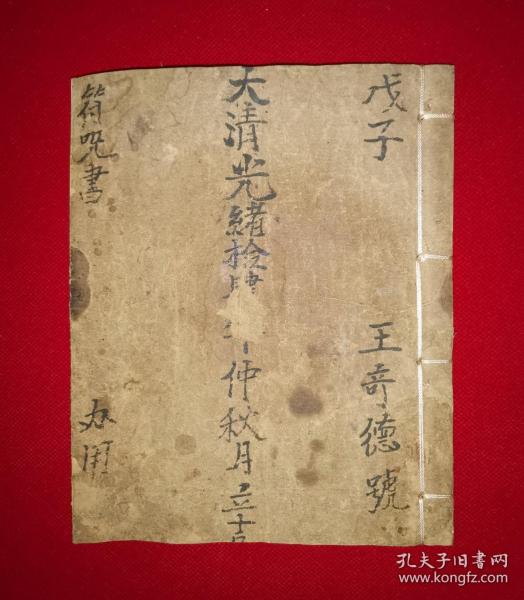 戊子 王奇德號
大清光緒拾肆年仲秋月立十日
符咒書 办用
孔夫子旧书网
www.kongfz.com